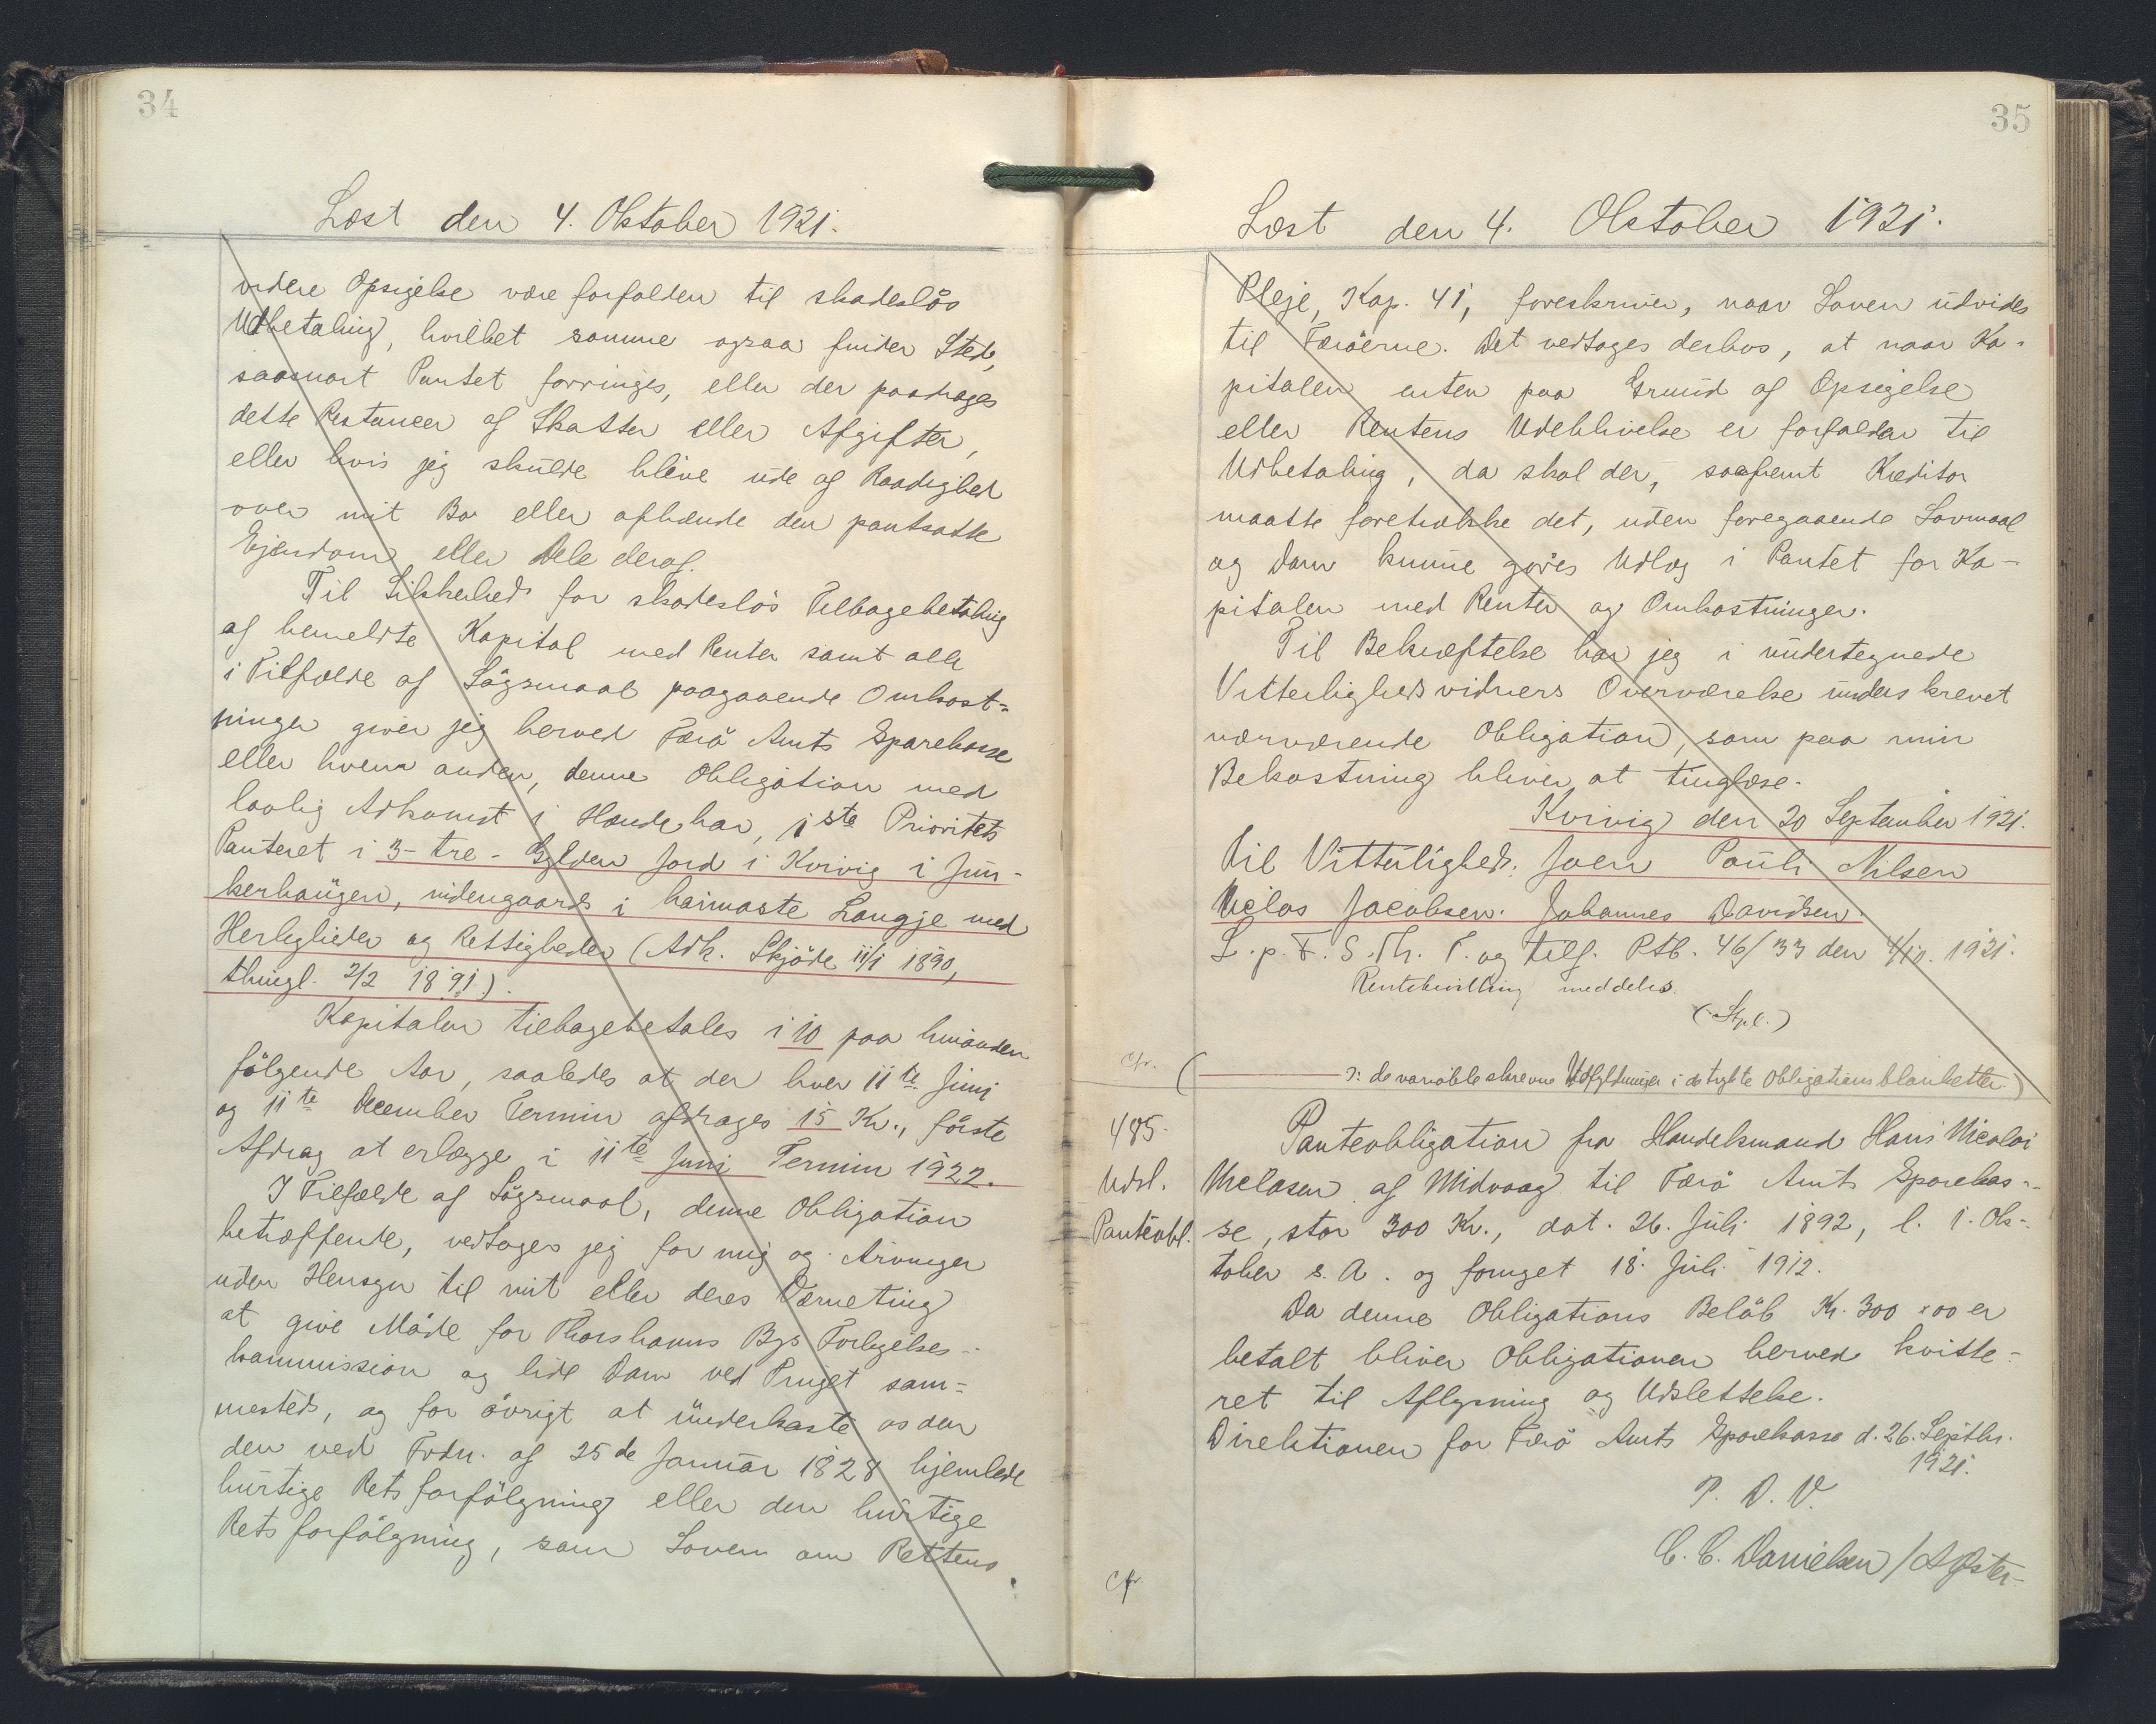 34
Læst den 4. Oktober 1921.
videre Opsigelse være forfalden til skadeslös
Udbetaling, hvilket samme ogsaa finder Sted,
saasnart Pantet forringes, eller der paadrages
dette Restancer af Skatter eller Afgifter,
eller hvis jeg skulde blive ude af Raadighed
over mit Bo eller afhænde den pantsatte
Ejendom eller Dele deraf.
Til Sikkerhed for skadeslös Tilbagebetaling
af bemeldte Kapital med Renter samt alle
i Tilfælde af Lögsmaal paagaaende Omkost-
ninger giver jeg herved Færö Amts Sparekasse
eller hvem anden, denne Obligation med
lovlig Adkomst i Hænde har, 1ste Prioritets
Panteret i 3 - tre - Gylden Jord i Kvivig i Jun-
kerhaugen, nidengaards i haimaste Langje med
Herligheder og Rettigheder (Adk. Skjöde 11/1 1890,
thingl. 2/2 1891).
Kapitalen tilbagebetales i 10 paa hinanden
fölgende Aar, saaledes at der hver 11te Juni
og 11te December Termin afdrages 15 Kr., förste
Afdrag at erlægge i 11te Juni Termin 1922.
I Tilfælde af Lögsmaal, denne Obligation
betræffende, vedtager jeg for mig og Arvinger
uden Hensyn til mit eller deres Værneting
at give Möde for Thorshavns Bys Forligelses-
kommission og lide Dom ved Tinget sam-
mesteds, og for övrigt at underkaste os den
den ved Frdn. af 25de Januar 1828 hjemlede
hurtige Retsforfölgning eller den hurtige
Retsforfölgning, som Loven om Rettens
35
Læst den 4. Oktober 1921.
Pleje, Kap. 41, foreskriver, naar Loven udvides
til Færöerne. Det vedtages derhos, at naar Ka-
pitalen enten paa Grund af Opsigelse
eller Rentens Udeblivelse er forfalden til
Udbetaling, da skal der, saafremt Kreditor
maatte foretrække det, uden foregaaende Lovmaal
og Dom kunne göres Udlæg i Pantet for Ka-
pitalen med Renter og Omkostninger.
Til Bekræftelse har jeg i undertegnede
Vitterlighedsvidners Overværelse underskrevet
nærværende Obligation, som paa min
Bekostning bliver at tinglæse.
Kvivig den 20 September 1921.
Til Vitterlighed: Joen Pauli Nilsen
Niclas Jacobsen. Johannes Davidsen.
L. p. F. S. Th. T. og tilf. Ptb. 46/33 den 4/10. 1921.
Rentebevilling meddeles.
(Stpl.)
cfr. ( ɔ: de variable skrevne Udfyldninger i de trykte Obligationsblanketter.)
485. Panteobligation fra Handelsmand Hans Nicolai
Udsl. Niclasen af Midvaag til Færö Amts Sparekas-
Panteobl. se, stor 300 Kr., dat. 26. Juli 1892, l. 1. Ok-
tober s. A. og fornyet 18. Juli 1912.
Da denne Obligations Belöb Kr. 300 x 00 er
betalt bliver Obligationen herved kvitte-
ret til Aflysning og Udslettelse.
Direktionen for Færö Amts Sparekasse d. 26. Septbr.
1921.
P. D. V.
C. C. Danielsen /
cfr